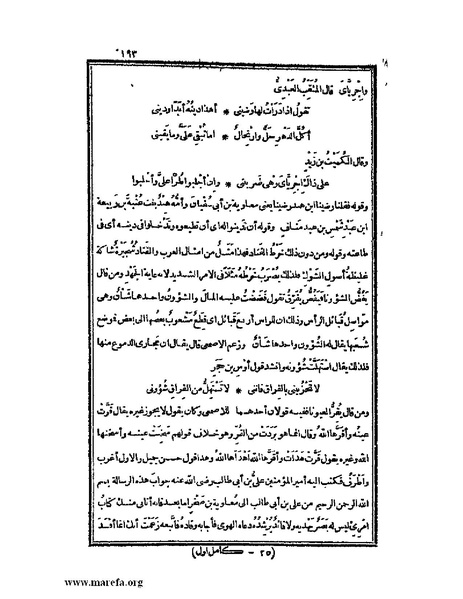 ١٩٣
واجرياى قال المثقب العبدى
تقول اذا درأت لها وضينى * أهذا دينه أبدا ودينى
أكل الدهر حل وارتحال * أما تبقى على وما يقينى
وقال الكميت بن زيد
على ذاك اجرياى وهى ضريبتى * وان أجلبوا طرا على وأحلبوا
وقوله فقلنا رضينا ابن هند رضينا يعنى معاوية بن أبى سفيان وأمه هند بنت عتبة بن ربيعة
ابن عبد شمس بن عبد مناف وقوله أن تدينوا له أى أن تطيعوه وتدخلوا فى دينه أى فى
طاعته وقوله ومن دون ذلك خرط القتاد فهذا مثل من أمثال العرب والقتاد شجيرة شاكة
غليظة أصول الشوك فلذلك يضرب خرطه مثلا فى الامر الشديد لانه غاية الجهد ومن قال
يغض الشؤونا فيغض يفرق تقول فضضت عليه المال والشؤون واحدها شأن وهى
مواصل قبائل الرأس وذلك ان للرأس أربع قبائل اى قطع مشعوب بعضها الى بعض فموضع
شعبها يقال له الشؤون واحدها شأن وزعم الاصمعى قال يقال ان مجارى الدموع منها
فلذلك يقال استهلت شؤونه وانشد قول أوس بن حجر
لا تحزنينى بالفراق فاننى * لا تستهل من الفراق شؤونى
ومن قال يقر العيونا ففيه قولان أحدهما للاصمعى وكان يقول لا يجوز غيره يقال قرت
عينه وأقرها الله وقال انما هو بردت من القر وهو خلاف قولهم سخنت عينه وأسخنها
الله وغيره يقول قرت هدأت وأقرها الله أهدأها الله وهذا قول حسن جميل والاول أغرب
وأطرف فكتب اليه أمير المؤمنين على بن أبى طالب رضى الله عنه جواب هذه الرسالة بسم
الله الرحمن الرحيم من على بن أبى طالب الى معاوية بن صخر أما بعد فانه أتانى منك كتاب
امرئ ليس له بصر يهديه ولا قائد يرشده دعاه الهوى فأجابه وقاده فاتبعه زعمت أنك انما أفسد
(٢٥ - كامل اول)
www.marefa.org